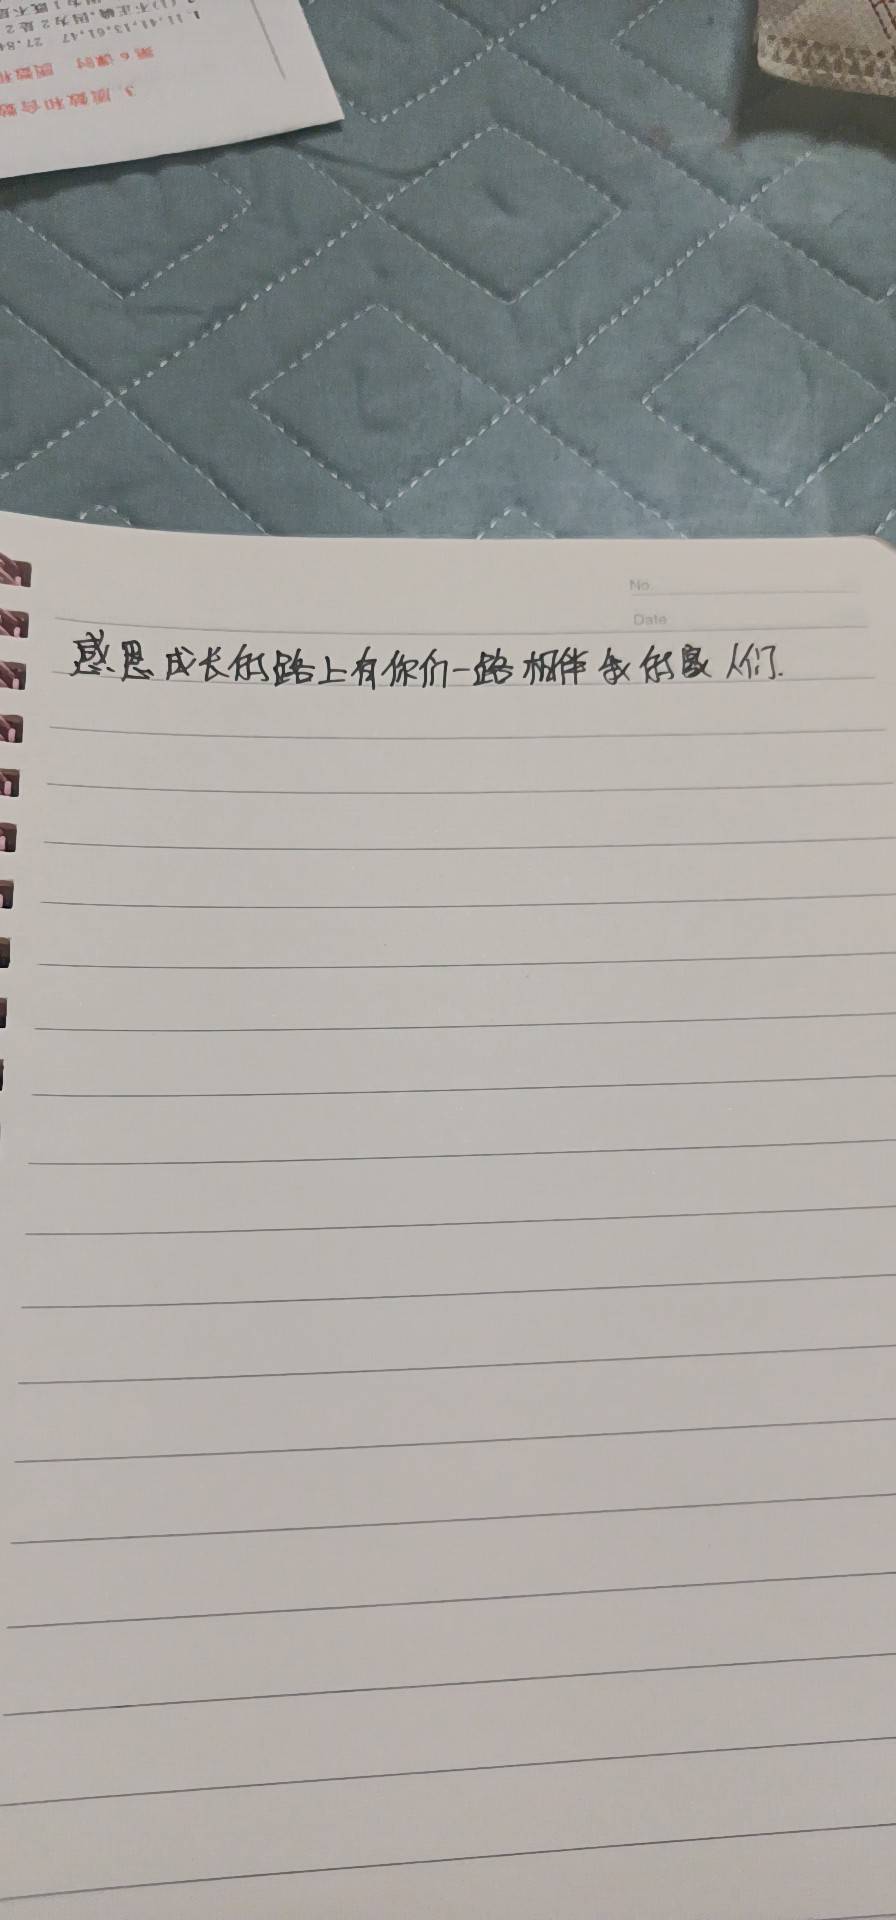 3. 质数和合数
第6课时
11,41,13,61,47 27,
(1)不正确,因为2是2
No.
Date
感恩成长的路上有你们一路相伴我的家人们.